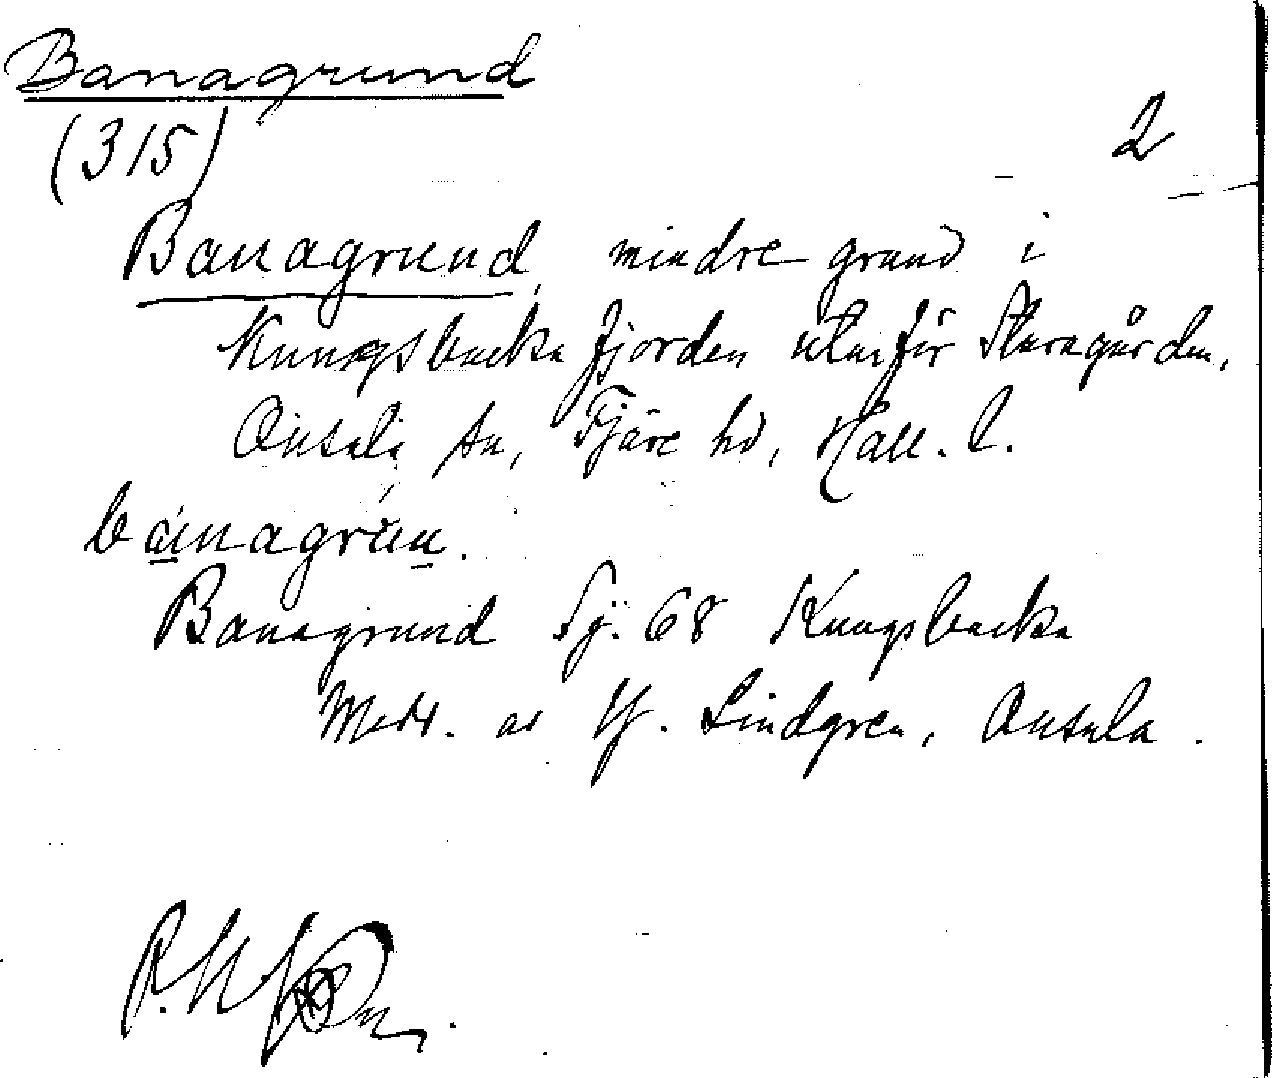 Banagrund
(315)
2
Banagrund, mindre grund i
Kungsbackafjorden utanför Staragården,
Onsala sn, Fjäre hd, Hall. l.
bánagrùn.
Banagrund Sj. 68 Kungsbacka
Medd. av Hj. Lindgren, Onsala.